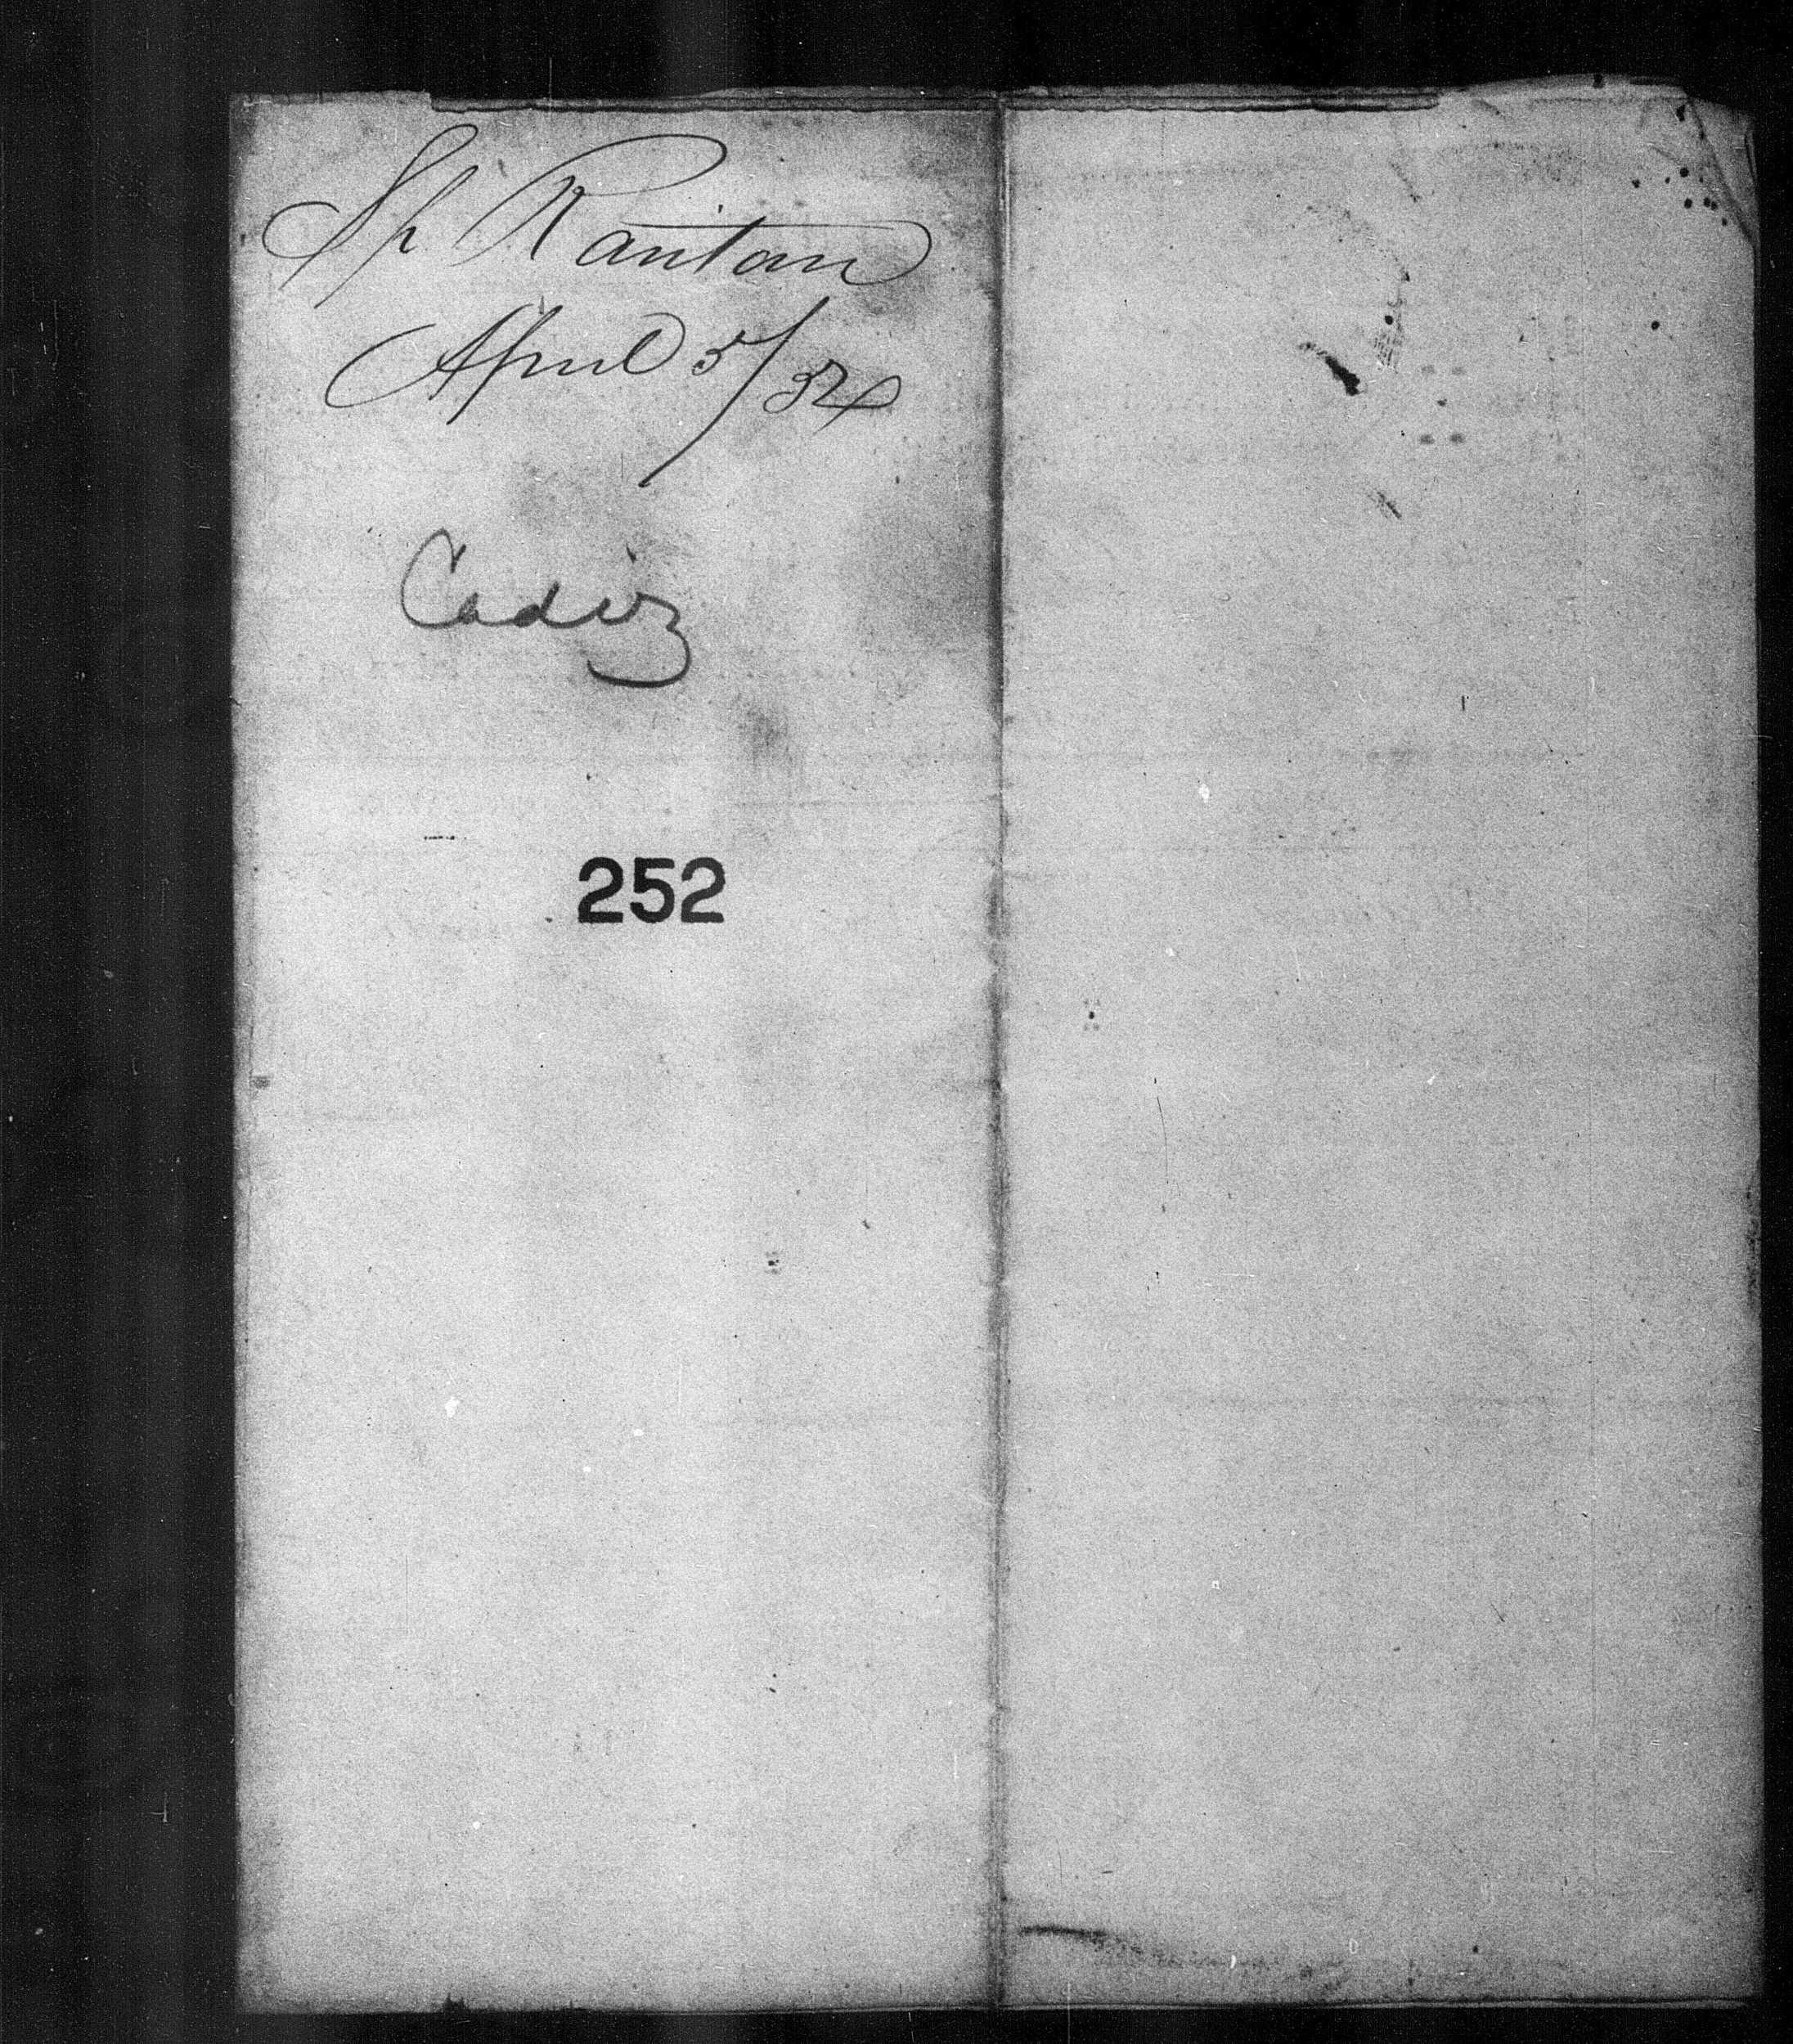 Sh Raritan
April 5/34
Cadiz
252